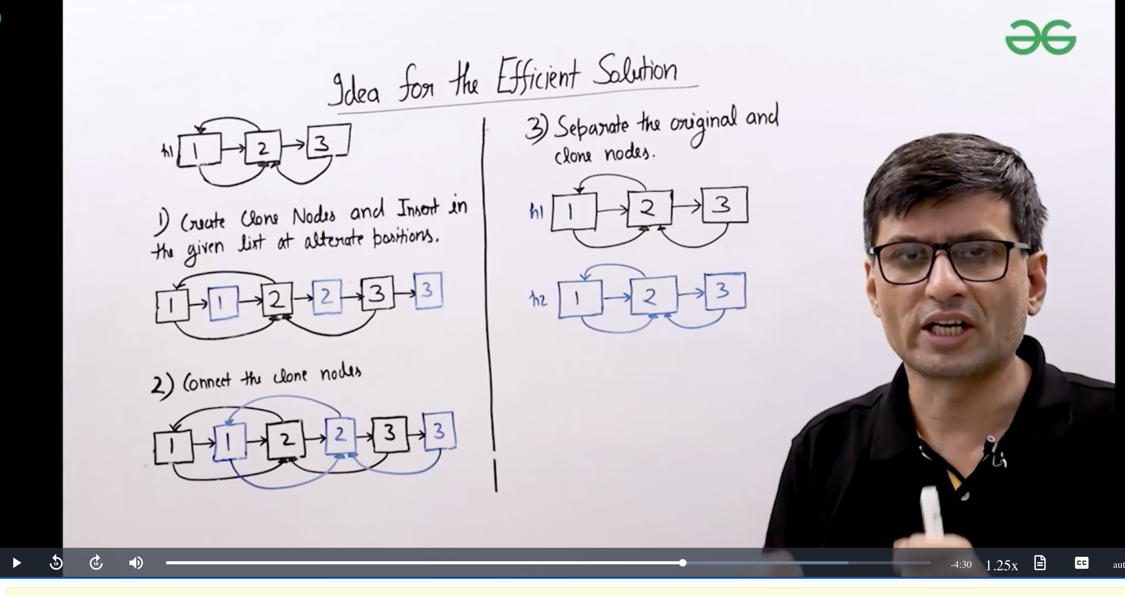 Idea for the Efficient Solution
h1 1 2 3
1) Create Clone Nodes and Insert in
the given list at alternate positions.
1 1 2 2 3 3
2) Connect the clone nodes
1 1 2 2 3 3
3) Separate the original and
clone nodes.
h1 1 2 3
h2 1 2 3
-4:30 1.25x CC aut